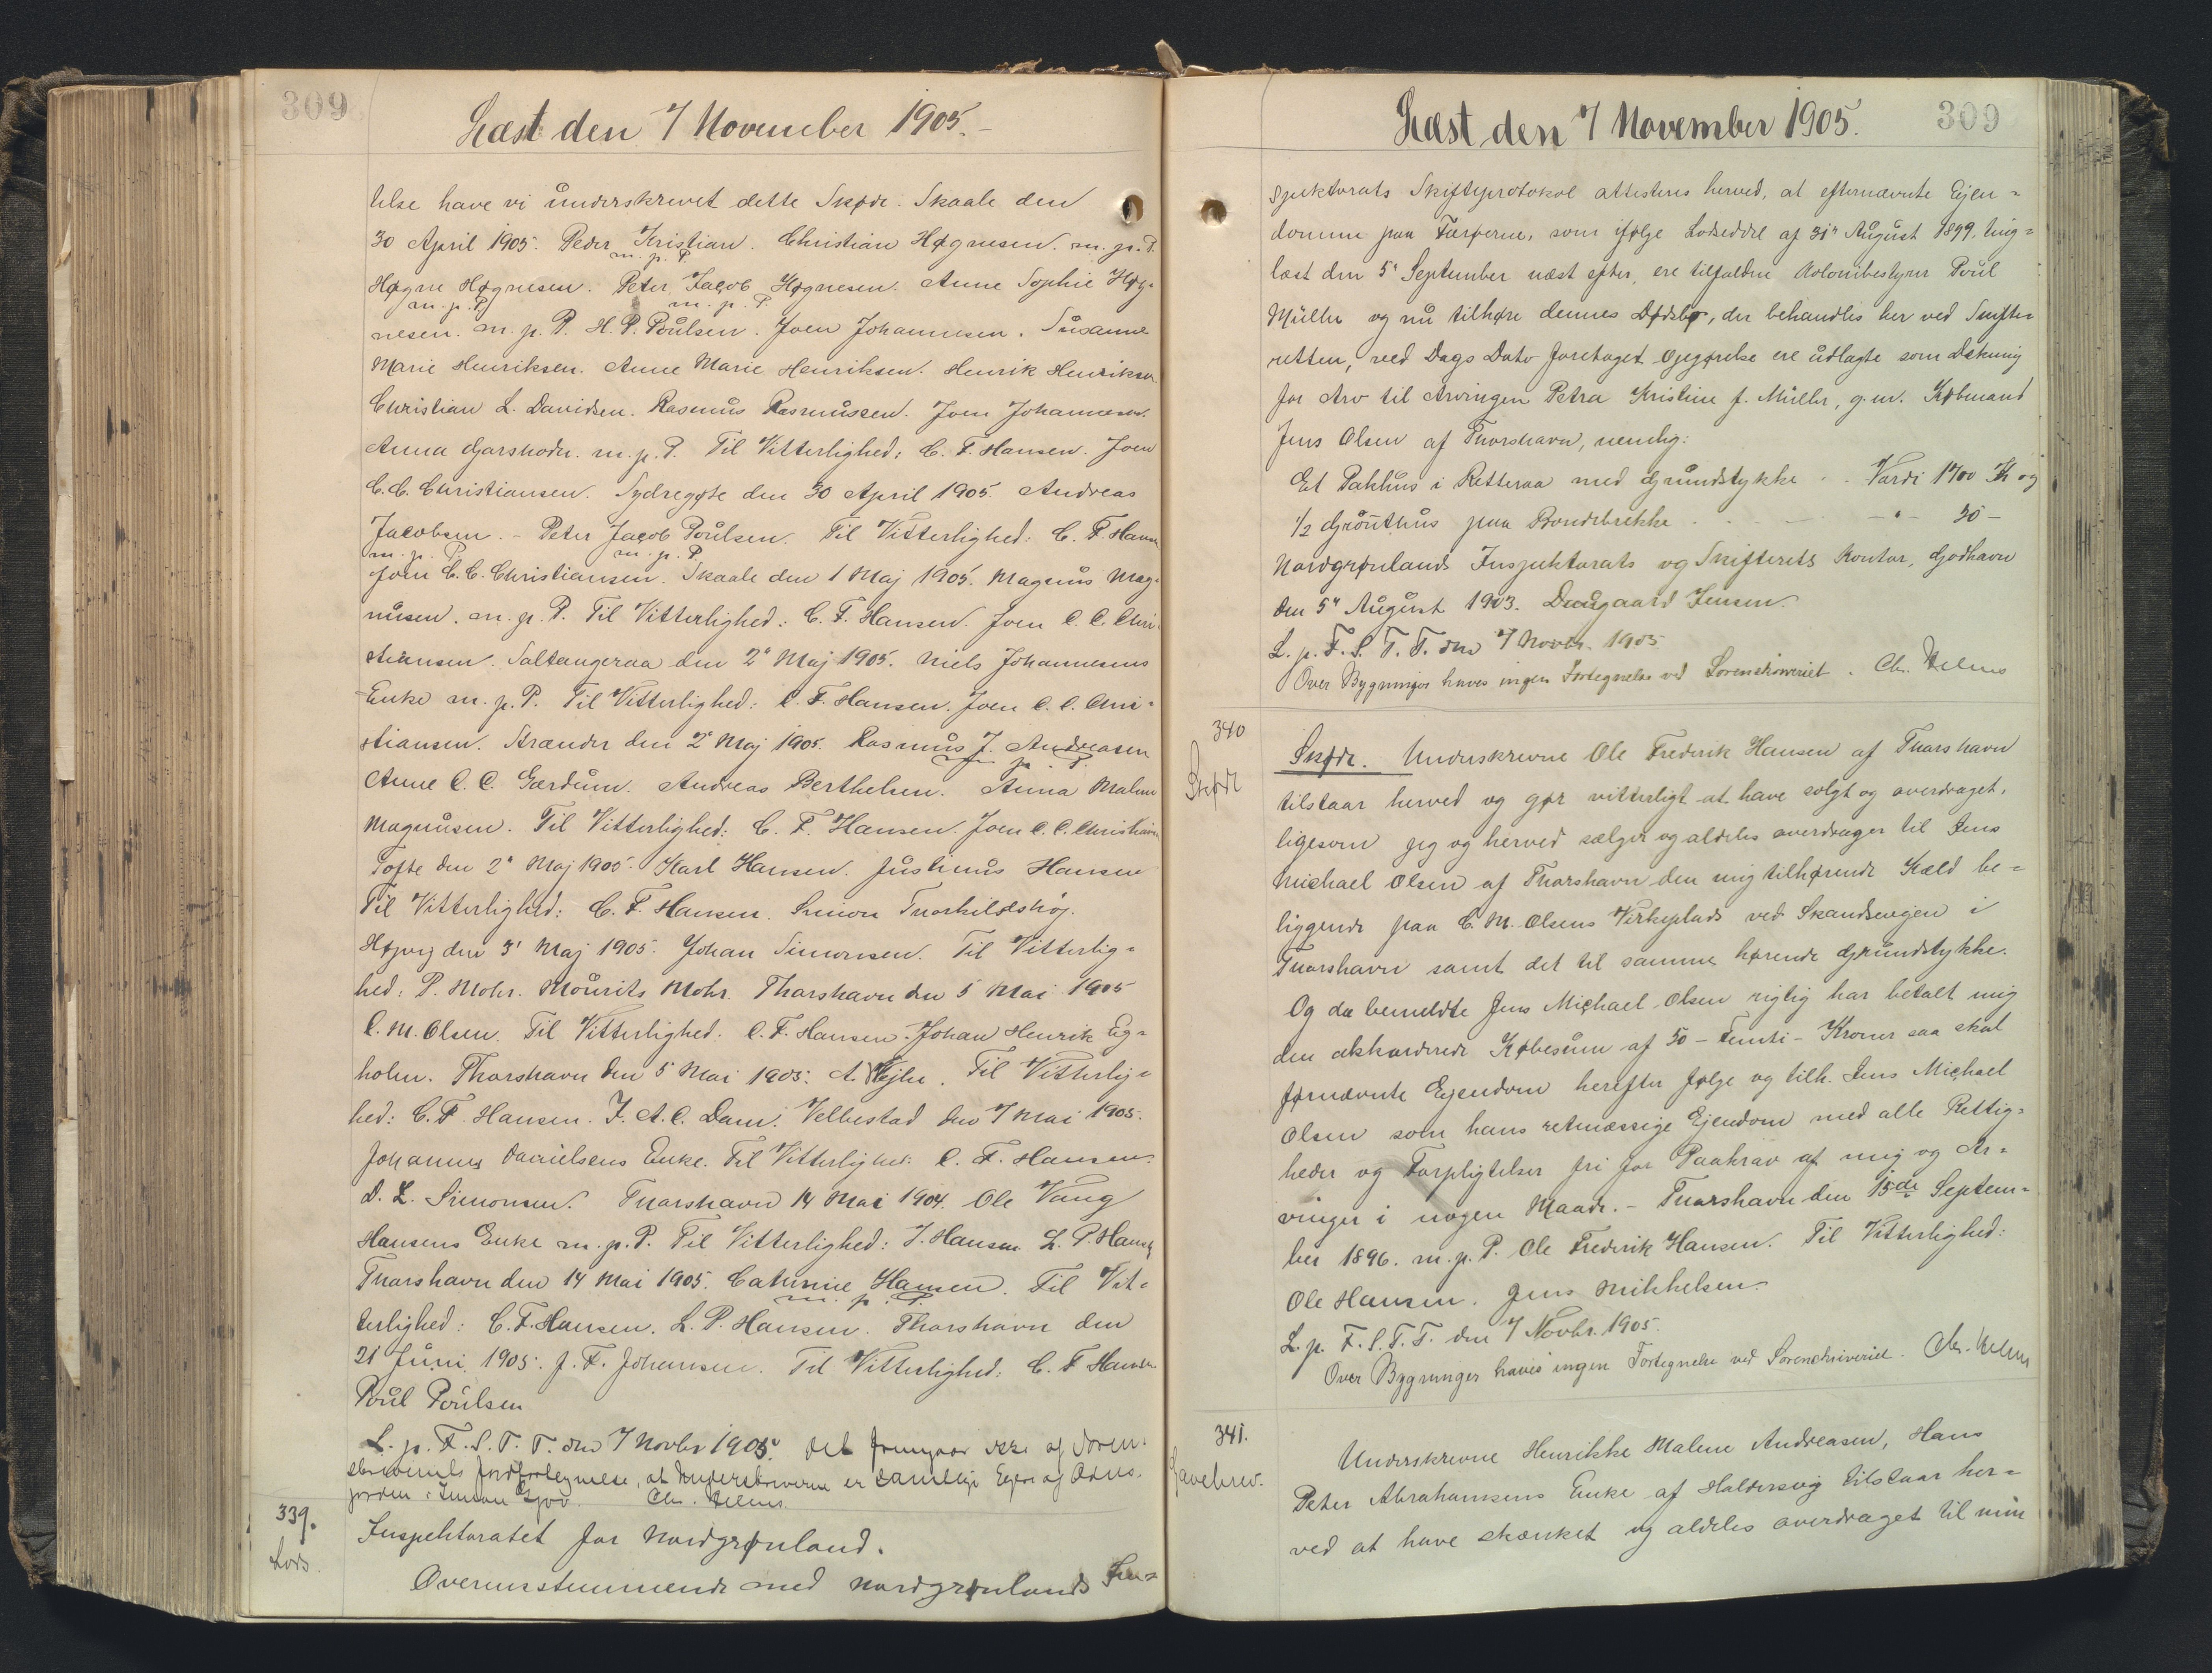 309
Læst den 7 November 1905.-
telse have vi underskrevet dette Skøde. Skaale den
30 April 1905. Peder Kristian. Christian Høgnesen. m. p. P.
m. p. P.
Høgne Høgnesen. Peter Jacob Høgnesen. Anne Sophie Høg-
m. p. P. m. p. P.
nesen. m. p. P. H. P. Poulsen. Joen Johannesen. Susanne
Marie Henriksen. Anne Marie Henriksen. Henrik Henriksen
Christian L. Davidsen. Rasmus Rasmussen. Joen Johannesen.
Anna Garskodn. m. p. P. Til Vitterlighed: C. F. Hansen. Joen
C. C. Christiansen. Sydregøte den 30 April 1905. Andreas
Jacobsen. - Peter Jacob Poulsen. Til Vitterlighed: C. F. Hansen
m. p. P. m. p. P.
Joen C. C. Christiansen. Skaale den 1 Maj 1905. Magnus Mag-
nusen. m. p. P. Til Vitterlighed: C. F. Hansen. Joen C. C. Chri-
stiansen. Saltangeraa den 2' Maj 1905. Niels Johannesens
Enke m. p. P. Til Vitterlighed: C. F. Hansen. Joen C. C. Chri-
stiansen. Strænder den 2' Maj 1905. Rasmus J. Andreasen
m. p. P.
Anne C. C. Gærdum. Andreas Berthelsen. Anna Malene
Magnusen. Til Vitterlighed: C. F. Hansen. Joen C. C. Christian
Tofte den 2' Maj 1905. Karl Hansen. Justinus Hansen
Til Vitterlighed: C. F. Hansen. Simon Thorkildshøj.
Højvig den 3' Maj 1905. Johan Simonsen. Til Vitterlig-
hed: P. Mohr. Mourits Mohr. Thorshavn den 5 Mai 1905
C. M. Olsen. Til Vitterlighed: C. F. Hansen. Johan Henrik Eg-
holm. Thorshavn den 5 Mai 1905. A. Vejhe. Til Vitterlig-
hed: C. F. Hansen. J. A. C. Dam. Velbestad den 7 Mai 1905.
Johannes Danielsens Enke. Til Vitterlighed: C. F. Hansen.
D. L. Simonsen. Thorshavn 14 Mai 1904. Ole Vang
Hansens Enke m. p. P. Til Vitterlighed: J. Hansen. L. P. Hansen
Thorshavn den 14 Mai 1905. Cathrine Hansen. Til Vit-
m. p. P.
terlighed: C. F. Hansen. L. P. Hansen. Thorshavn den
21 Juni 1905. J. F. Johansen. Til Vitterlighed: C. F. Hansen.
Poul Poulsen
L. p. F. S. T. T. den 7 Novbr 1905. Det fremgaar ikke af Soren-
skriveriets Jordfortegnelse, at Underskriverne er samtlige Ejere af Odels-
jorden i Chr. Helms.
339.
Lods.
Inspektoratet for Nordgrønland.
Overensstemmende med Nordgrønlands In-
309
Læst den 7 November 1905.
spektorats Skifteprotokol attesteres herved, at efternævnte Ejen-
domme paa Færøerne, som ifølge Lodseddel af 31' August 1899, ting-
læst den 5' September næst efter, ere tilfaldne Kolonibestyrer Poul
Müller og nu tilhøre dennes Dødsbo, der behandles her ved Skifte-
retten, ved Dags Dato foretaget Opgørelse ere udlagte som Dækning
for Arv til Arvingen Petra Kristine f. Müller, g. m. Købmand
Jens Olsen af Thorshavn, nemlig:
Et Pakhus i Retteraa med Grundstykke . . Værdi 1700 Kr og
1/2 Grønthus paa Bondebrekke . . . - " - 30 -
Nordgrønlands Inspektorats og Skifterets Kontor, Godhavn
den 5' August 1903. Daugaard Jensen.
L. p. F. S. T. T. den 7 Novbr. 1905
Over Bygninger haves ingen Fortegnelse ved Sorenskriveriet. Chr. Helms
340
Skøde
Skøde. Underskrevne Ole Frederik Hansen af Thorshavn
tilstaar herved og gør vitterligt at have solgt og overdraget,
ligesom jeg og herved sælger og aldeles overdrager til Jens
Michael Olsen af Thorshavn den mig tilhørende Kæld be-
liggende paa C. M. Olsens Virkeplads ved Skandsevejen i
Thorshavn samt det til samme hørende Grundstykke.
Og da bemeldte Jens Michael Olsen rigtig har betalt mig
den akkorderede Købesum af 50 - Femti - Kroner saa skal
førnævnte Ejendom herefter følge og tilh. Jens Michael
Olsen som hans retmæssige Ejendom med alle Rettig-
heder og Forpligtelser fri for Paakrav af mig og Ar-
vinger i nogen Maade. - Thorshavn den 15de Septem-
ber 1896. m. p. P. Ole Frederik Hansen. Til Vitterlighed:
Ole Hansen. Jens Mikkelsen.
L. p. F. S. T. T. den 7 Novbr. 1905.
Over Bygninger haves ingen Fortegnelse ved Sorenskriveriet. Chr. Helms
341.
Gavebrev.
Underskrevne Henrikke Malene Andreasen, Hans
Peter Abrahamsens Enke af Haldersvig tilstaar her-
ved at have skænket og aldeles overdraget til min